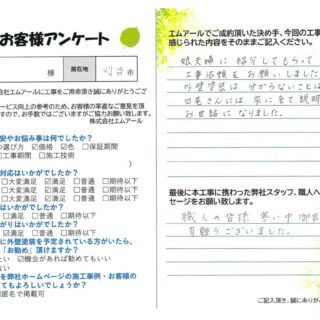 お客様アンケート
様
居住地
株式会社エムアールに工事をご用命頂き誠にありがとうござ
サービス向上の参考のため、お客様の率直なご意見を頂
ますので、お手数ではございますがご協力お願い致します。
株式会社エムアール
不安やお悩み事は何でしたか?
の選び方 ☑価格 ☑色 □保証期間
□工事期間 ☑施工技術
対応はいかがでしたか?
□大変満足 ☑満足 □普通 □期待以下
はいかがでしたか?
□大変満足 ☑満足 □普通 □期待以下
□大変満足 ☑満足 □普通 □期待以下
がりはいかがでしたか?
□大変満足 ☑満足 □普通 □期待以下
に外壁塗装を予定されている方がいたら、
「お勧め」頂けますか?
たい ☑機会があれば勧めてもいい
ない
を弊社ホームページの施工事例・お客様の
てもよろしいでしょうか?
匿名で掲載可
エムアールでご成約頂いた決め手、今回の工事
感じられた内容をそのままご記入ください。
娘夫婦に紹介してもらって
工事依頼をお願いしました
外壁塗装は分からないことは
さんには、家に来て説明
お世話になりました。
最後に本工事に携わった弊社スタッフ、職人へ
セージをお願い致します。
職人の皆様 寒い中
有難うございました。
ご記入頂き、誠にありがと